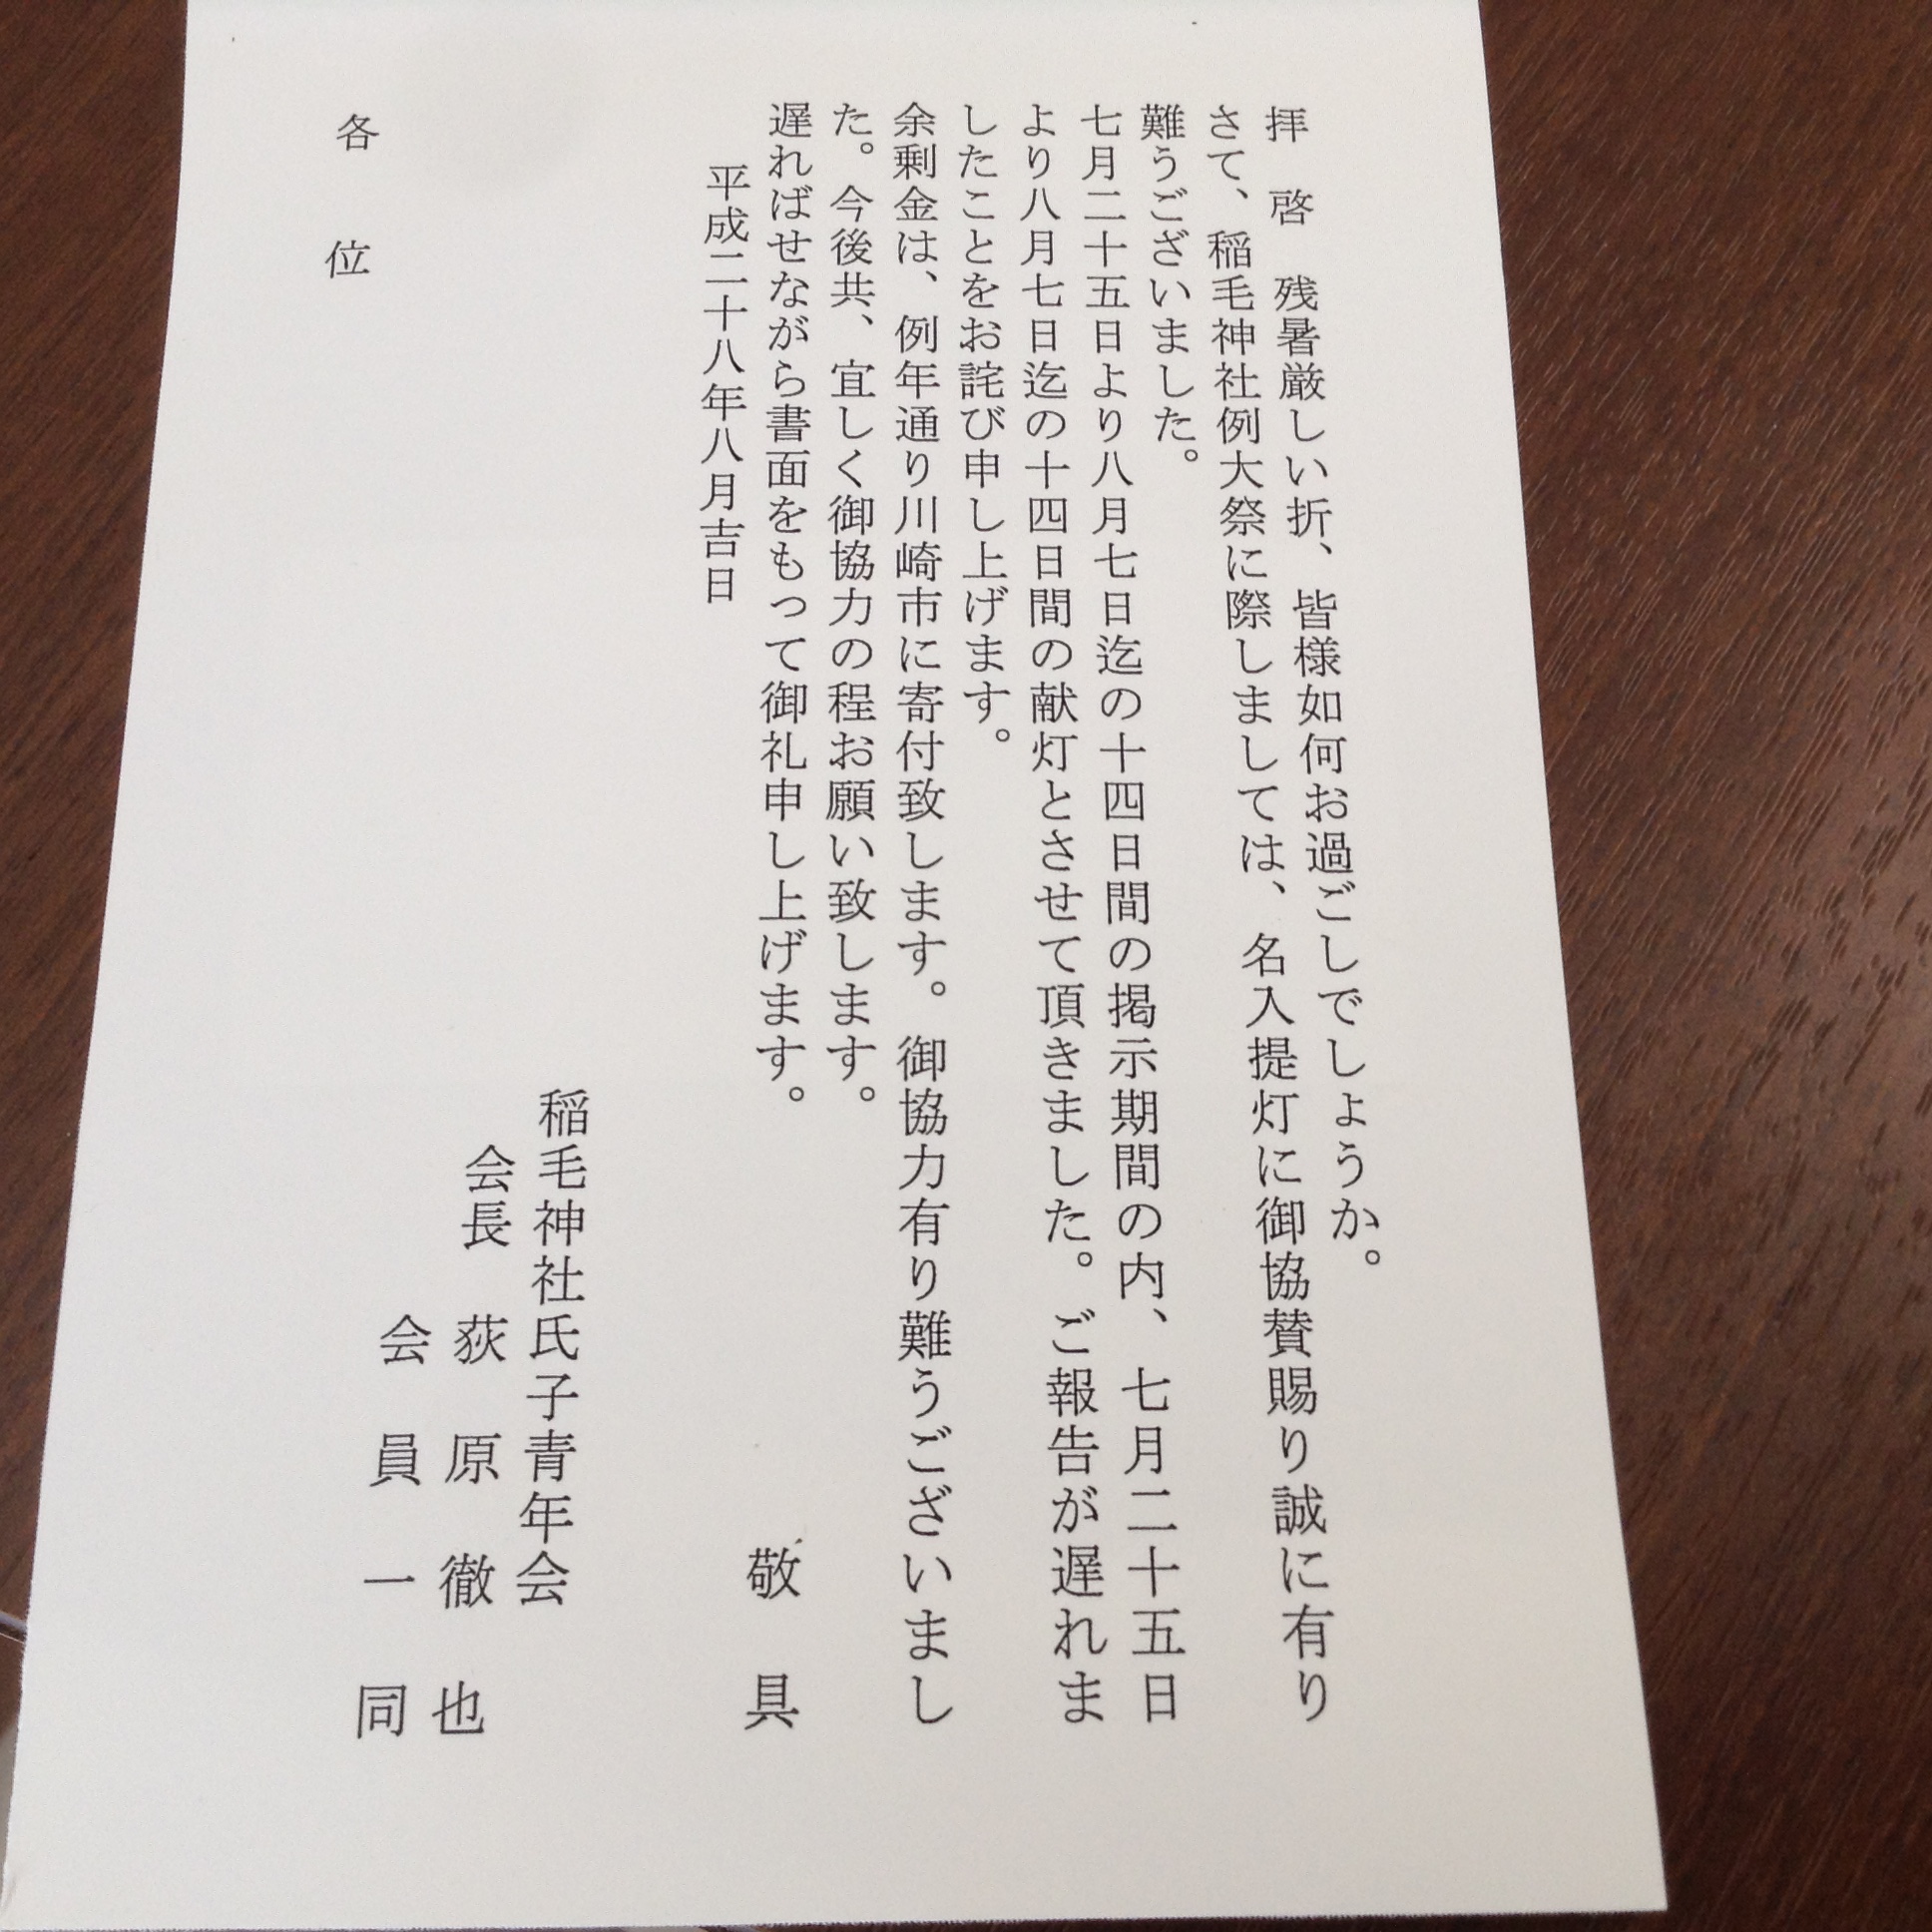 拝　啓　残暑厳しい折、皆様如何お過ごしでしょうか。
さて、稲毛神社例大祭に際しましては、名入提灯に御協賛賜り誠に有り
難うございました。
七月二十五日より八月七日迄の十四日間の掲示期間の内、七月二十五日
より八月七日迄の十四日間の献灯とさせて頂きました。ご報告が遅れま
したことをお詫び申し上げます。
余剰金は、例年通り川崎市に寄付致します。御協力有り難うございまし
た。今後共、宜しく御協力の程お願い致します。
遅ればせながら書面をもって御礼申し上げます。
敬　具
平成二十八年八月吉日
稲毛神社氏子青年会
会長　荻　原　徹　也
会　員　一　同
各　位